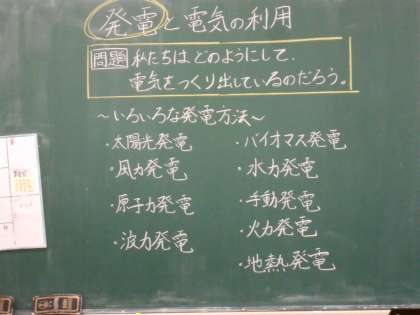 発電と電気の利用
問題 私たちはどのようにして、
電気をつくり出しているのだろう。
～いろいろな発電方法～
・太陽光発電
・風力発電
・原子力発電
・波力発電
・バイオマス発電
・水力発電
・手動発電
・火力発電
・地熱発電